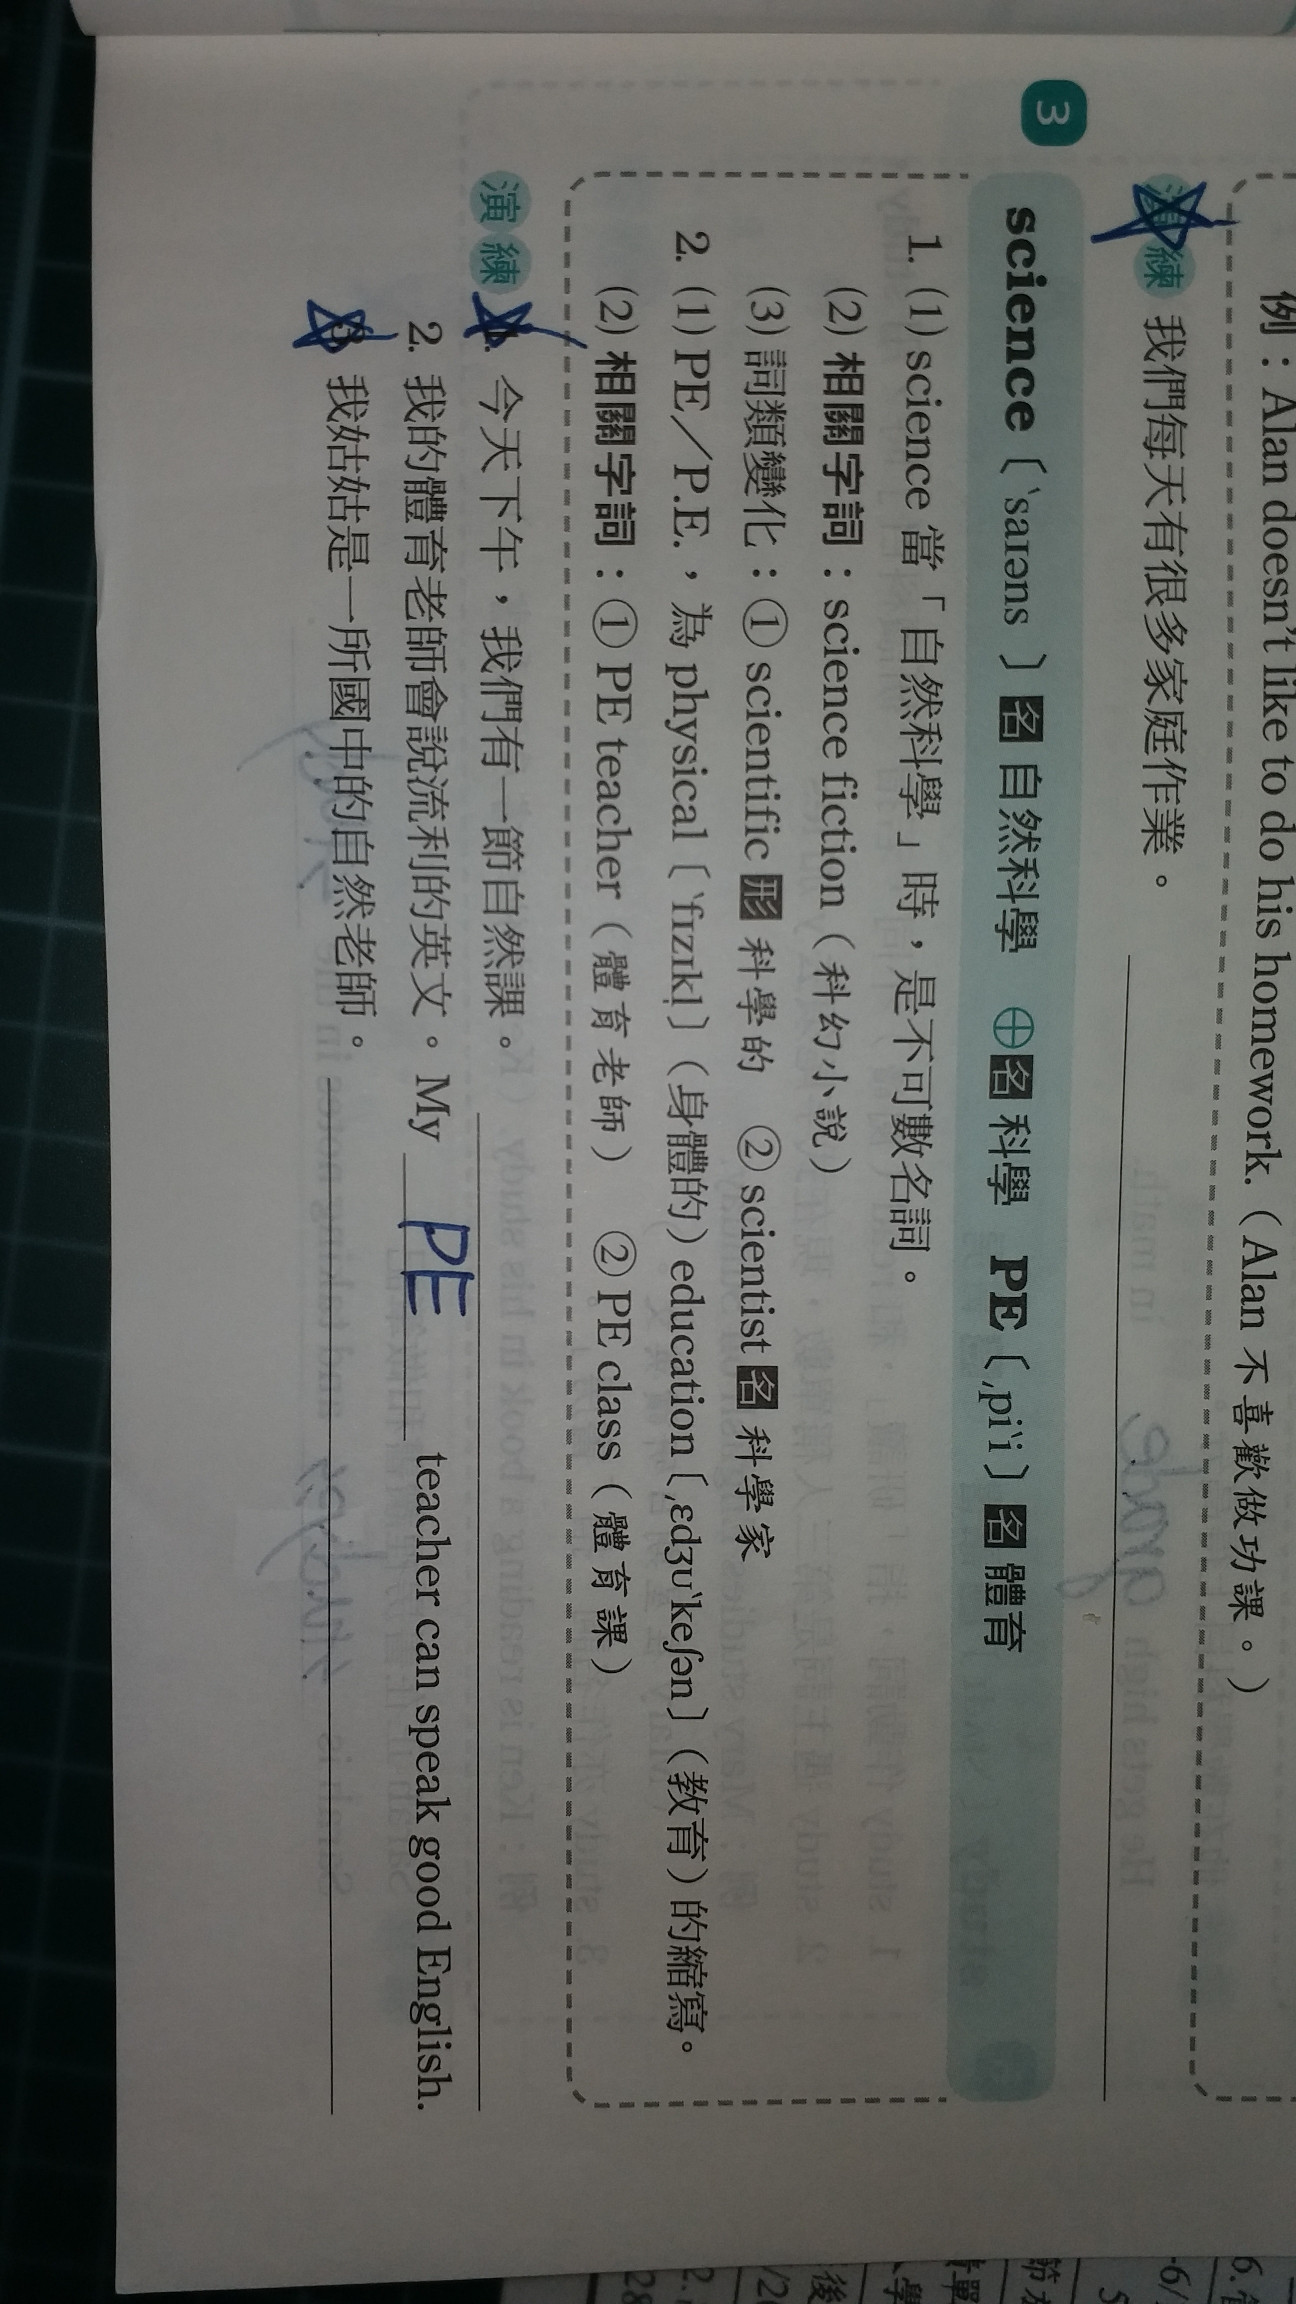 例：Alan doesn't like to do his homework.（Alan 不喜歡做功課。）
演練 我們每天有很多家庭作業。
3 science〔ˋsaɪəns〕名 自然科學 ⊕名 科學 PE〔ˌpiˋi〕名 體育
1. (1) science 當「自然科學」時，是不可數名詞。
(2) 相關字詞：science fiction（科幻小說）
(3) 詞類變化：① scientific 形 科學的 ② scientist 名 科學家
2. (1) PE／P.E.，為 physical〔ˋfɪzɪkl̩〕（身體的）education〔ˌɛdʒʊˋkeʃən〕（教育）的縮寫。
(2) 相關字詞：① PE teacher（體育老師） ② PE class（體育課）
演練 1. 今天下午，我們有一節自然課。
2. 我的體育老師會說流利的英文。My PE teacher can speak good English.
3. 我姑姑是一所國中的自然老師。